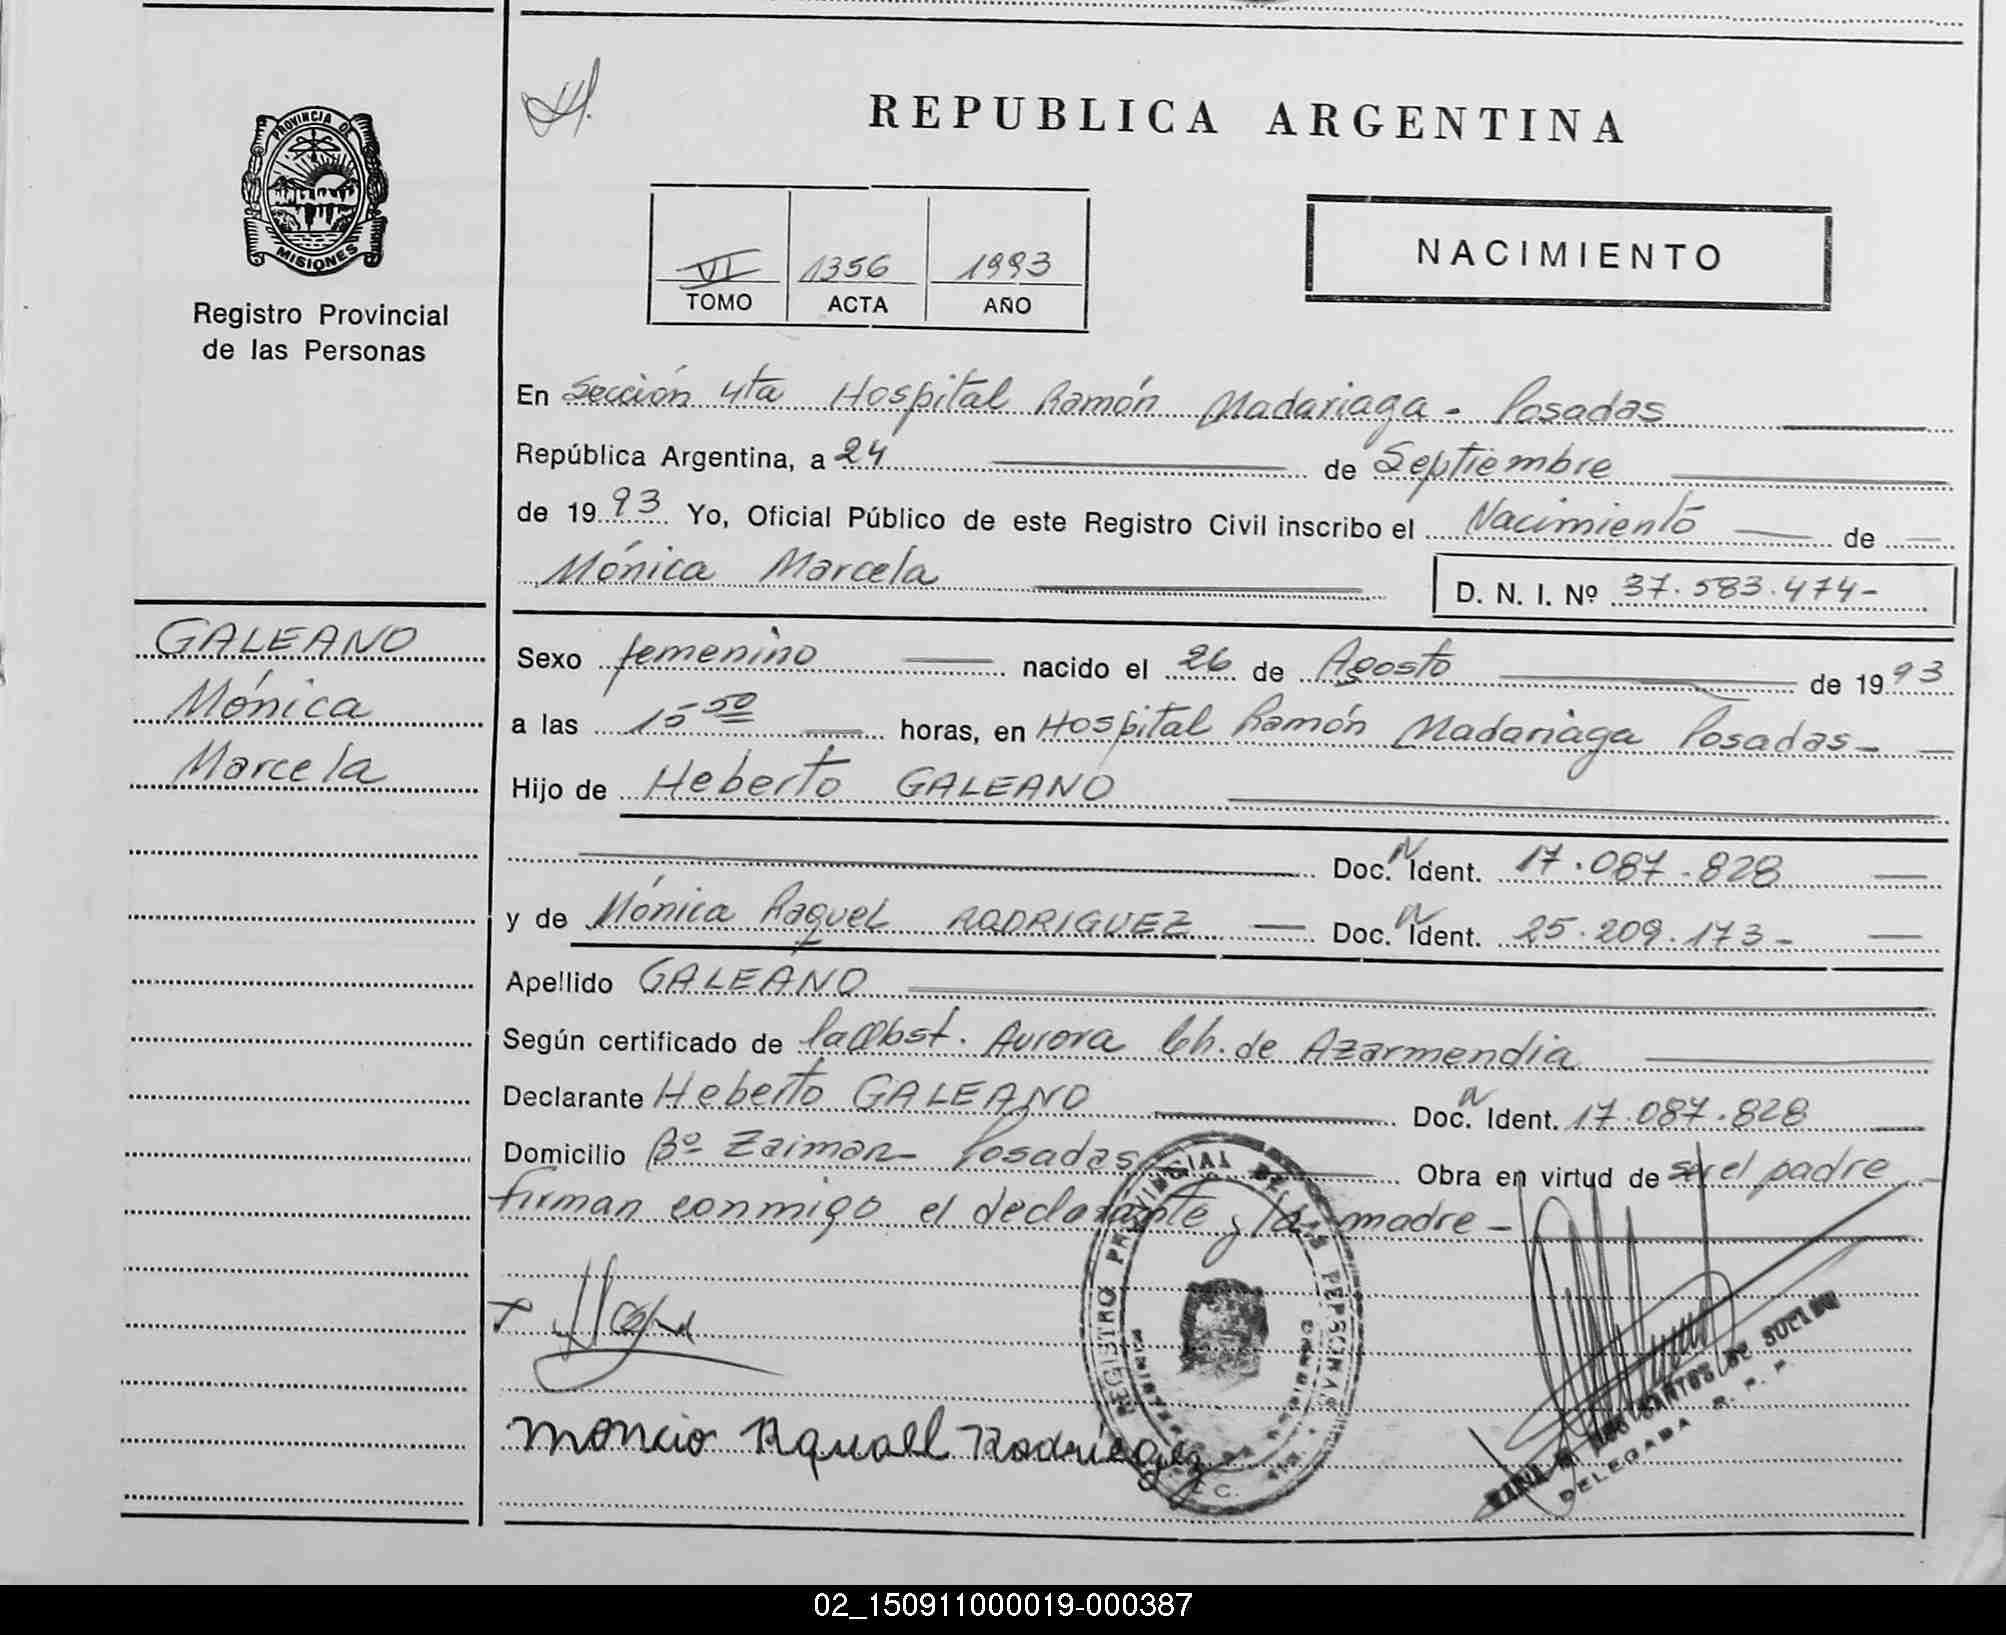 REPUBLICA ARGENTINA
PROVINCIA DE
MISIONES
Registro Provincial
de las Personas
VI 1356 1993
TOMO ACTA AÑO
NACIMIENTO
En Sección 4ta Hospital Ramón Madariaga - Posadas
República Argentina, a 24 de Septiembre
de 1993 Yo, Oficial Público de este Registro Civil inscribo el Nacimiento de
Mónica Marcela
D. N. I. Nº 37.583.474-
GALEANO
Mónica
Marcela
Sexo femenino nacido el 26 de Agosto de 1993
a las 15 50 horas, en Hospital Ramón Madariaga Posadas-
Hijo de Heberto GALEANO
Doc. N Ident. 17.087.828
y de Mónica Raquel RODRIGUEZ Doc. N Ident. 25.209.173-
Apellido GALEANO
Según certificado de la Obst. Aurora Ch. de Azarmendia
Declarante Heberto GALEANO Doc. N Ident. 17.087.828
Domicilio Bº Zaiman- Posadas Obra en virtud de ser el padre
firman conmigo el declarante y la madre-
REGISTRO PROVINCIAL DE LAS PERSONAS
Moncio Rquall Rodriegez
DELEGADA R. P. P.
02_150911000019-000387